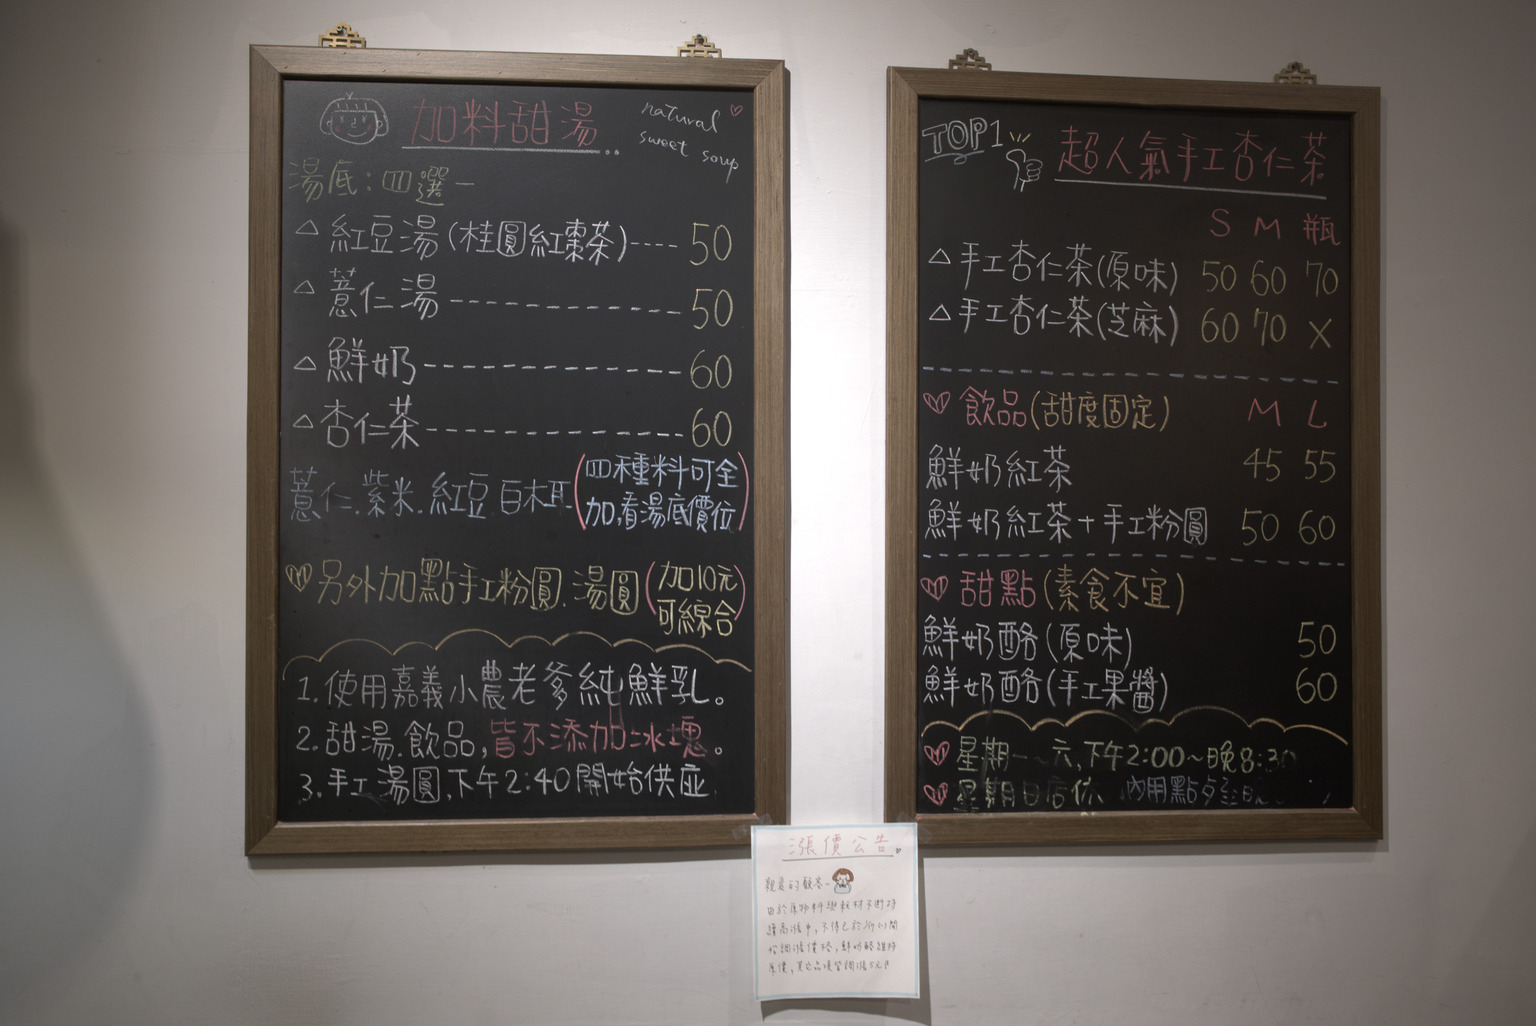 加料甜湯
natural
sweet soup
湯底：四選一
△紅豆湯(桂圓紅棗茶)----50
△薏仁湯---------------50
△鮮奶----------------60
△杏仁茶---------------60
薏仁.紫米.紅豆.白木耳
(四種料可全
加,看湯底價位)
另外加點手工粉圓.湯圓
(加10元
可綜合)
1.使用嘉義小農老爹純鮮乳。
2.甜湯.飲品,皆不添加冰塊。
3.手工湯圓,下午2:40開始供應
TOP1
超人氣手工杏仁茶
S M 瓶
△手工杏仁茶(原味) 50 60 70
△手工杏仁茶(芝麻) 60 70 X
飲品(甜度固定) M L
鮮奶紅茶 45 55
鮮奶紅茶+手工粉圓 50 60
甜點(素食不宜)
鮮奶酪(原味) 50
鮮奶酪(手工果醬) 60
星期一~六,下午2:00~晚8:30
星期日店休 內用點
漲價公告
親愛的顧客~
由於原物料與耗材不斷持
續高漲中,不得已於
調漲價格,鮮奶酪維持
原價,其它品項皆調漲5元